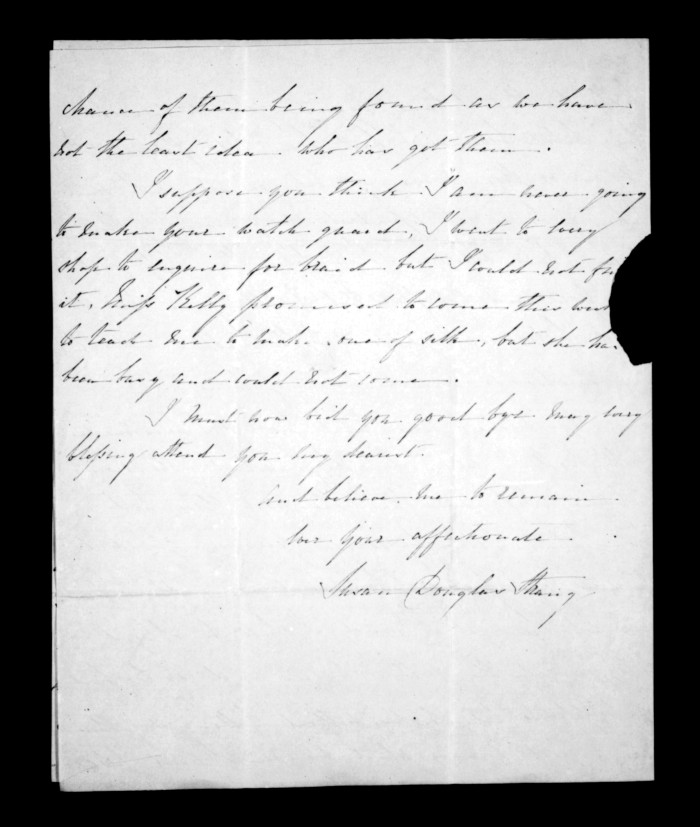 chance of them being found as we have
not the least idea who has got them.
I suppose you think I am never going
to make your watch guard, I went to every
shop to enquire for braid but I could not
it, Miss Kelly promised to come this
to teach me to make one of silk, but she ha
been busy and could not come.
I must now bid you good bye may every
blessing attend you my dearest.
And believe me to remain
ever your affectionate
Susan Douglas Strang